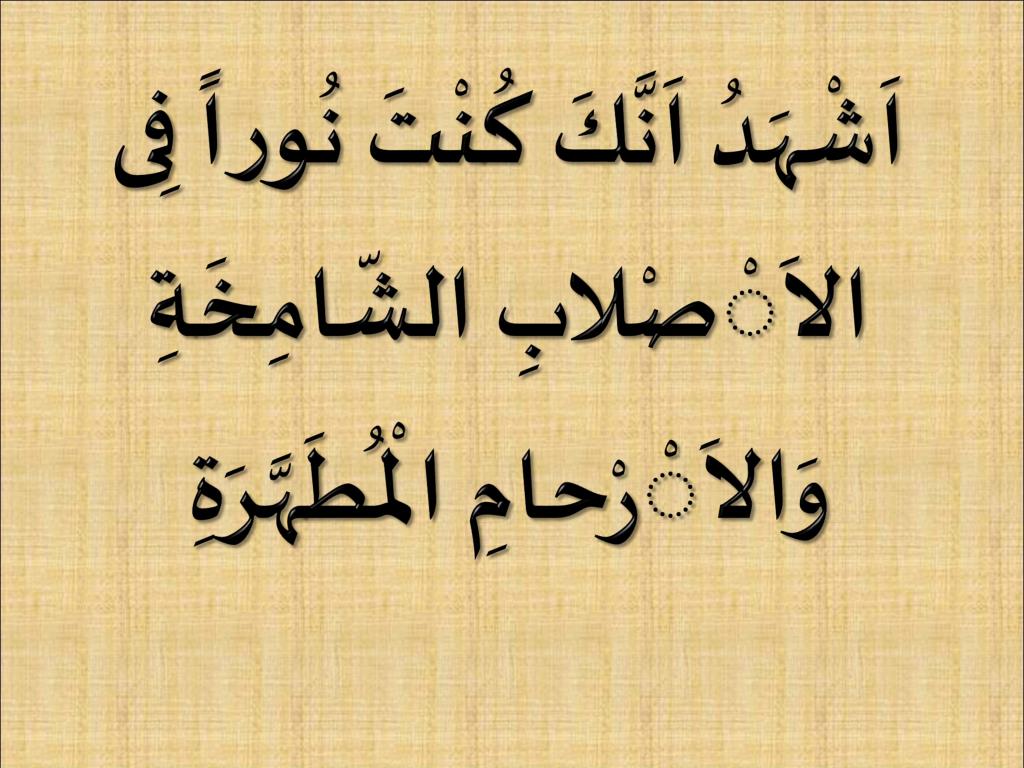 اَشْهَدُ اَنَّكَ كُنْتَ نُوراً فِى
الاَ ْصْلابِ الشّامِخَةِ
وَالاَ ْرْحامِ الْمُطَهَّرَةِ